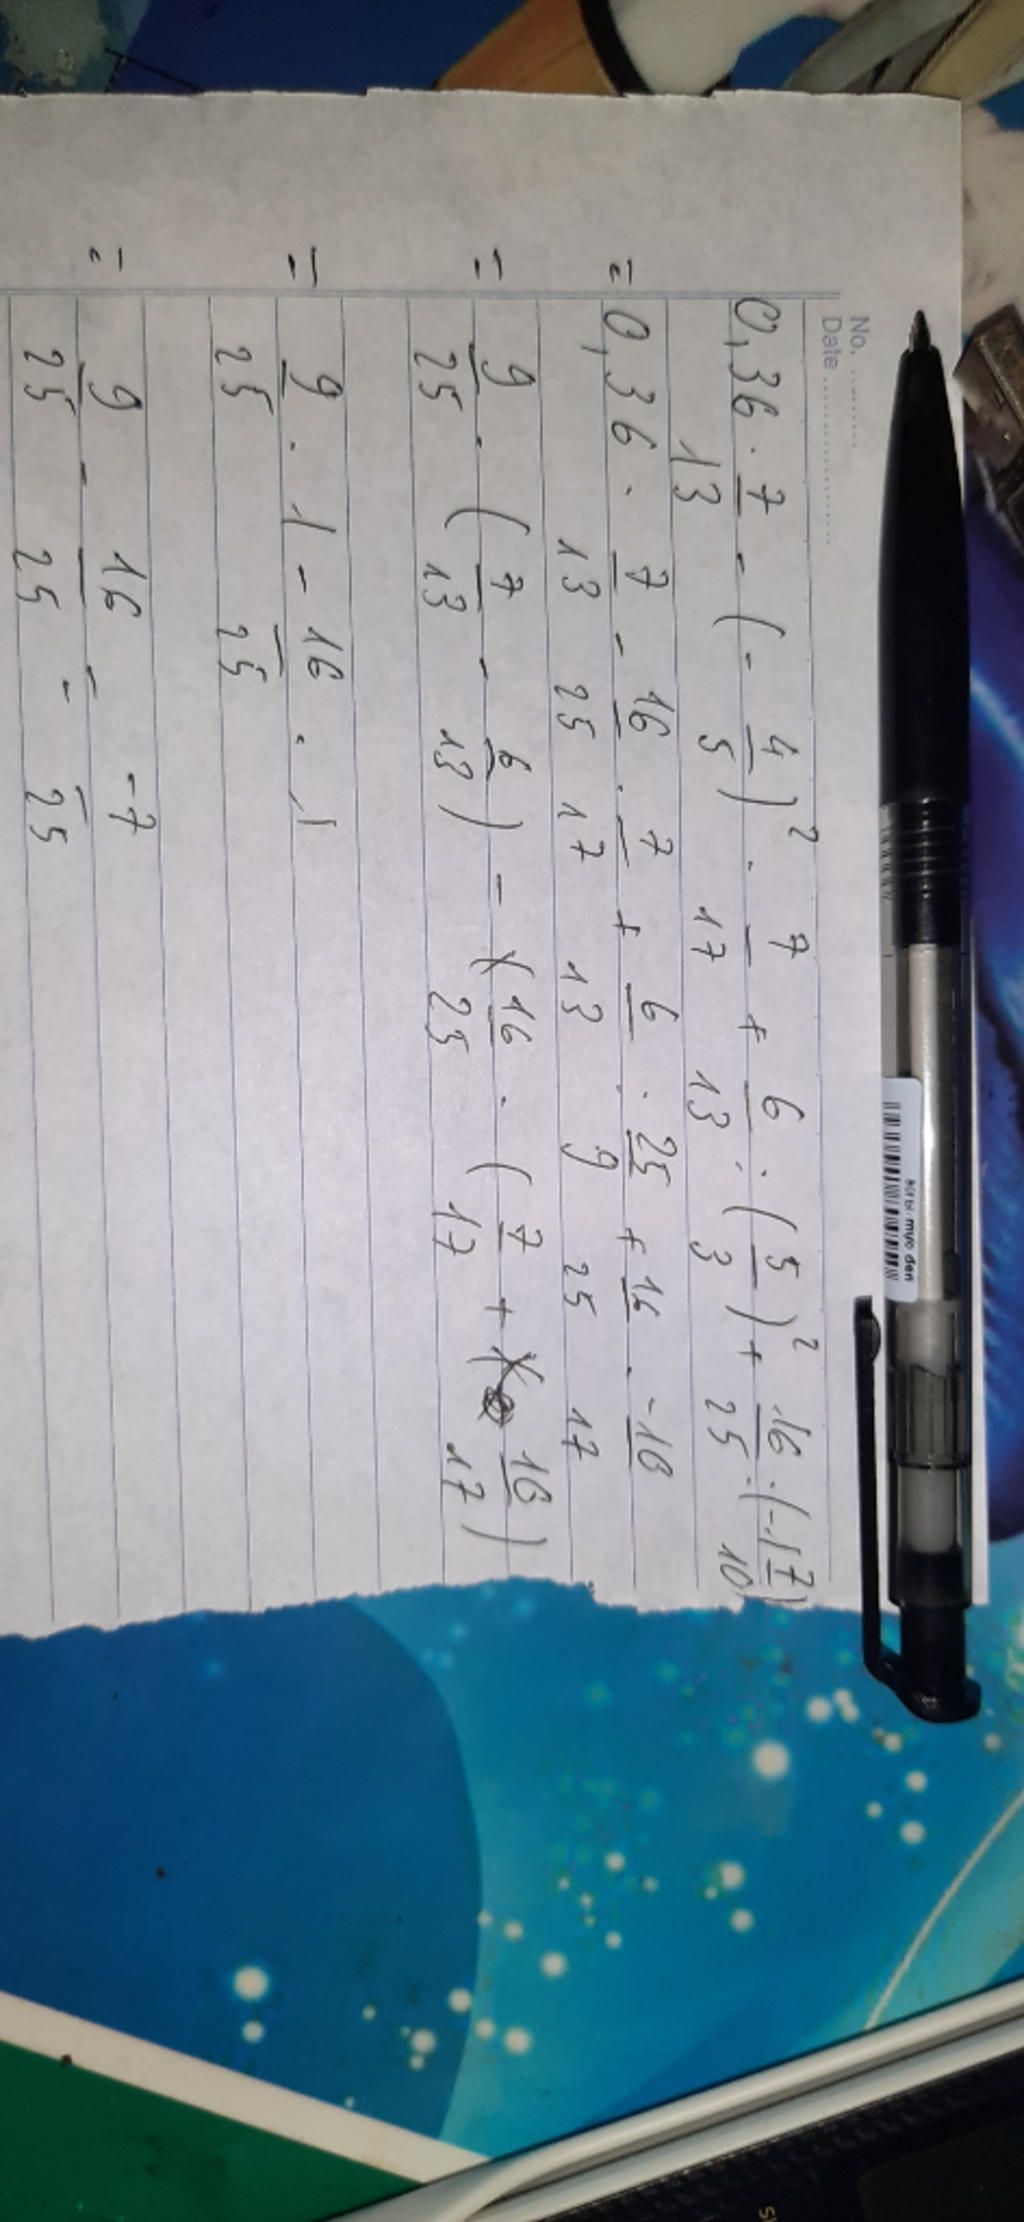 No. ..........
Date ....................
0,36 · 7/13 - (- 4/5)² · 7/17 + 6/13 : (5/3)² + 16/25 : (-1 7/10)
= 0,36 · 7/13 - 16/25 · 7/17 + 6/13 · 25/9 + 16/25 · -10/17
= 9/25 · (7/13 - 6/13) - (16/25 · (7/17 + 10/17)
= 9/25 · 1 - 16/25 · 1
= 9/25 - 16/25 = -7/25
bút bi · mực đen